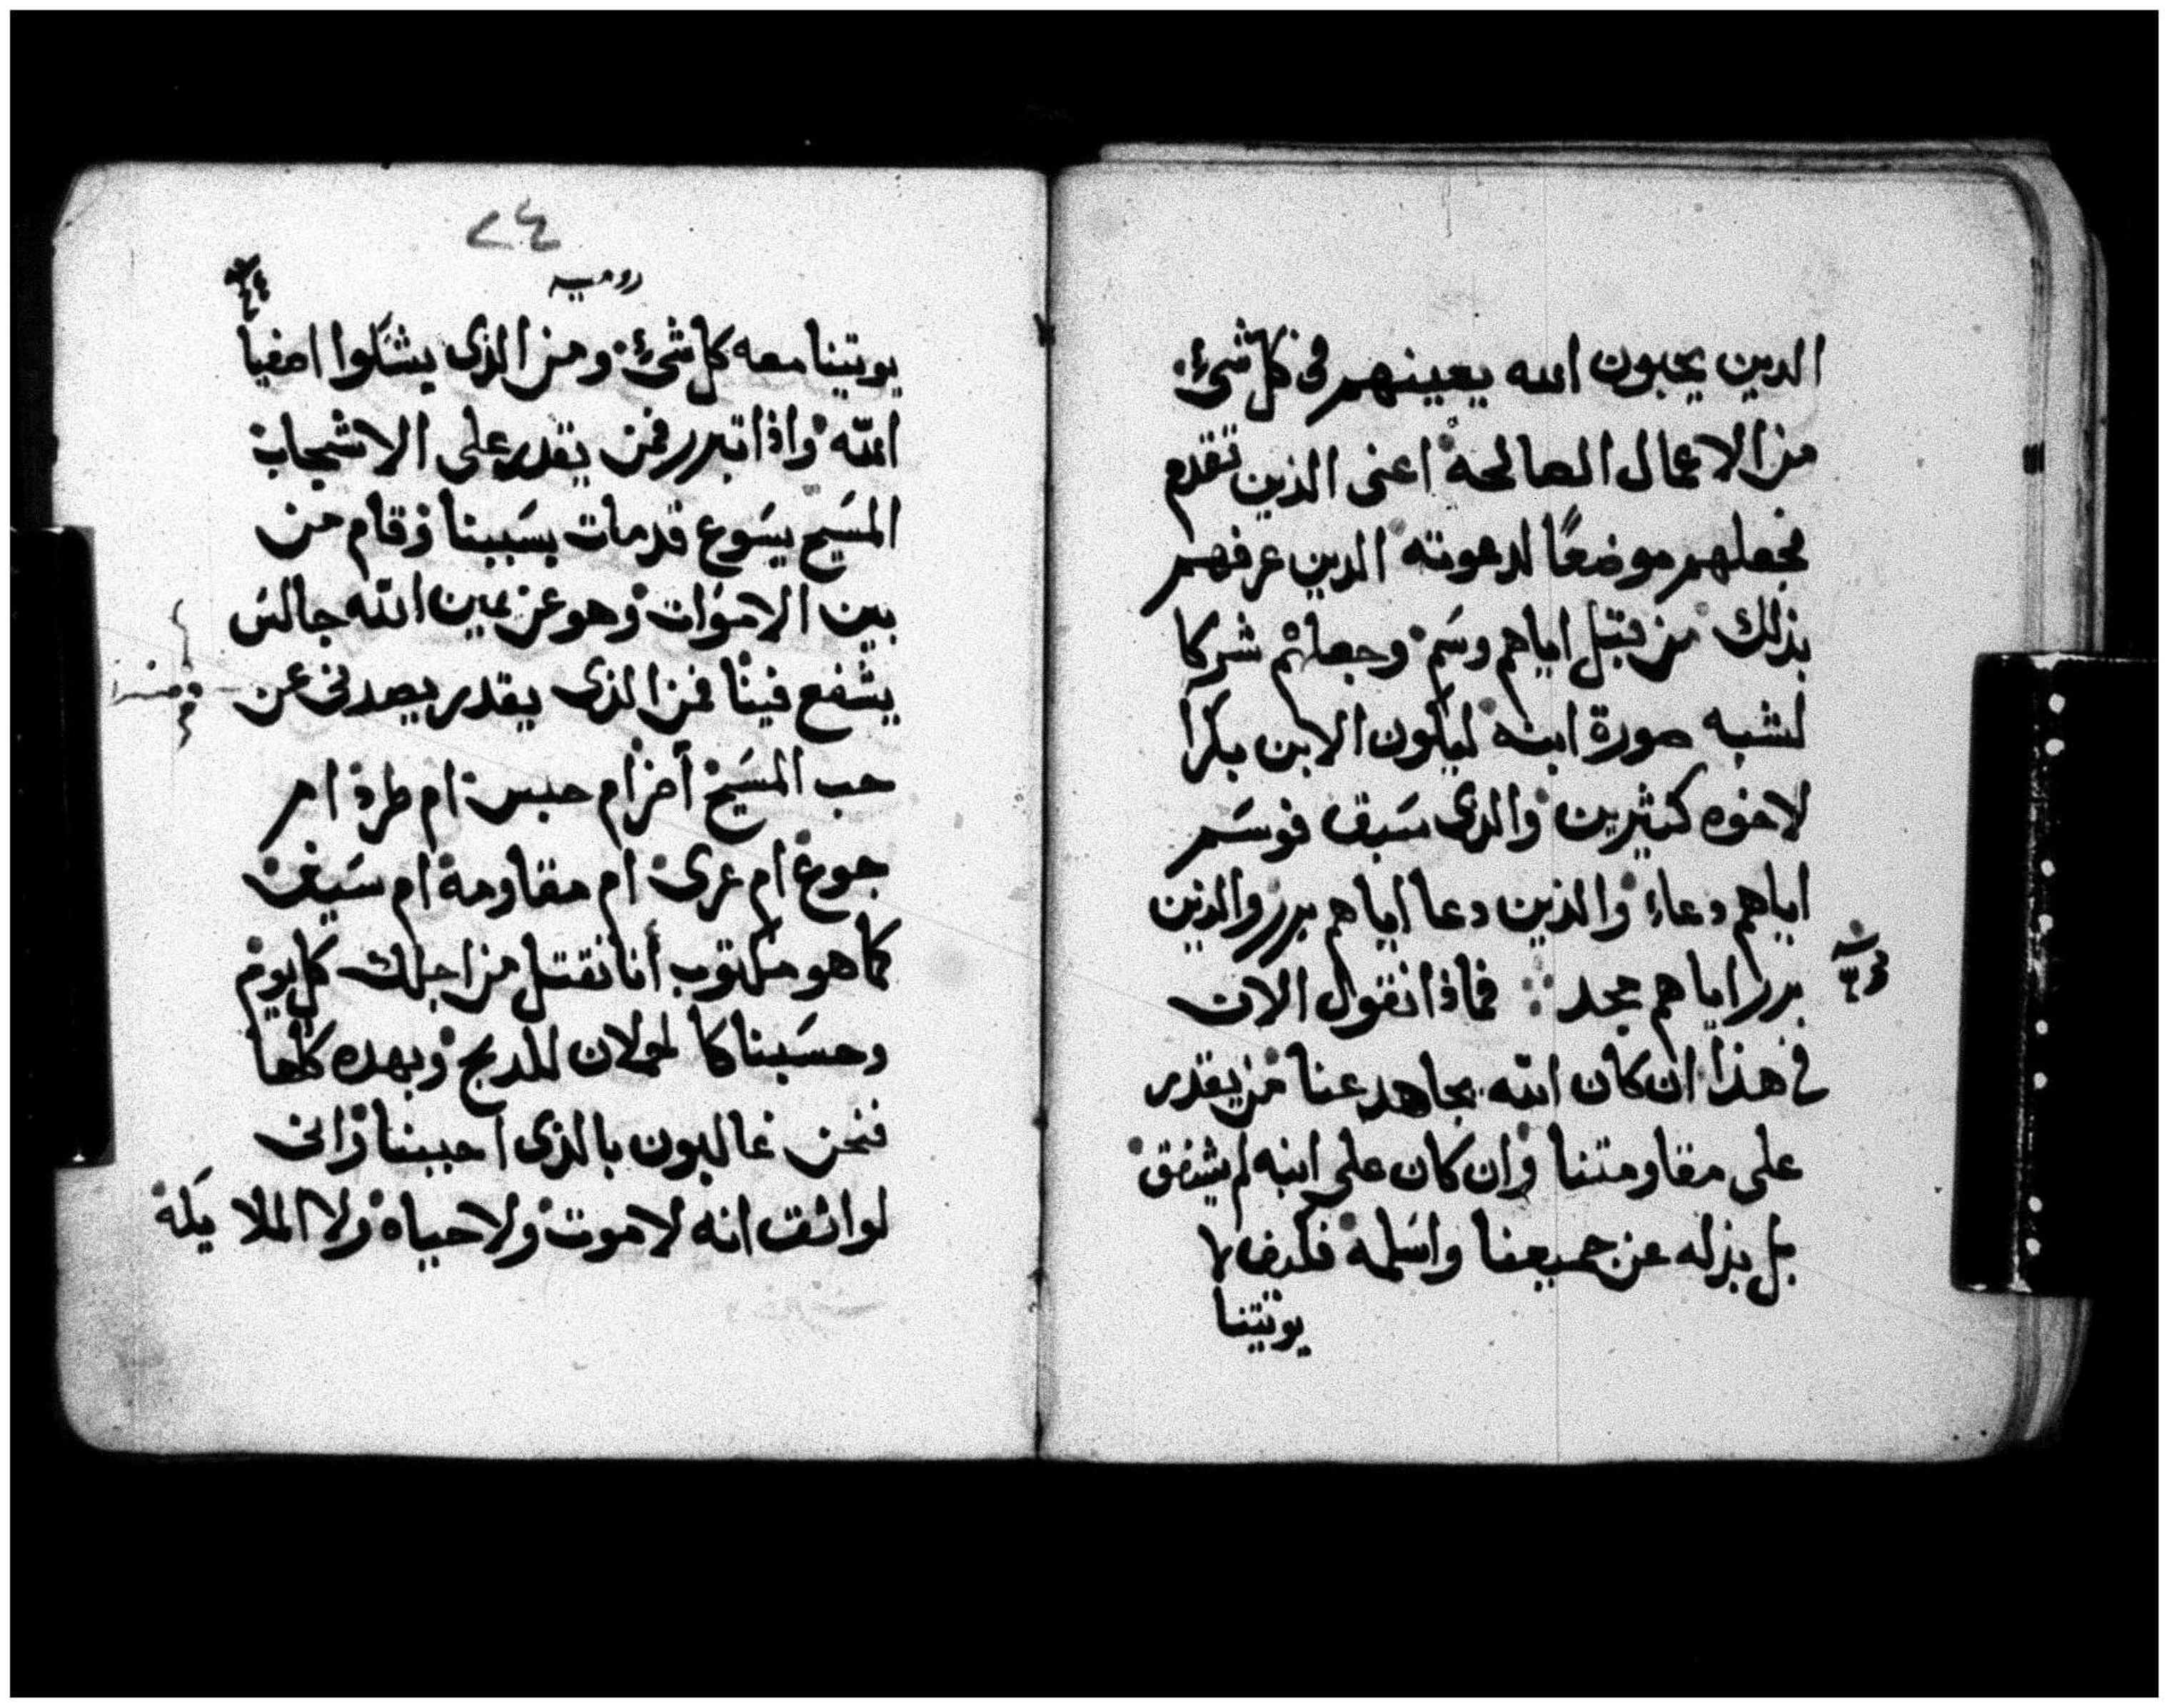 الدين يحبون الله يعينهم فى كل شىء
من الاعمال الصالحة اعنى الذين تقدم
فجعلهم موضعًا لدعوته الدين عرفهم
بذلك من قبل اياهم وسم وجعلهم شركا
لشبه صورة ابنه ليكون الابن بكرا
لاخوه كثيرين والدى سبق فوسم
اياهم دعاء والذين دعا اياهم برر والذين
برر اياهم مجد فماذا نقول الان
فى هذا ان كان الله يجاهد عنا من يقدر
على مقاومتنا وان كان على ابنه لم يشفق
بل بذله عن جميعنا واسلمه فكيف لا
يوتينا
٢٤
روميه
يوتينا معه كل شىء ومن الذى يشكوا اصفيا
الله واذا تبرر فمن يقدر على الاشجاب
المسيح يسوع قد مات بسببنا وقام من
بين الاموات وهو عن يمين الله جالس
يشفع فينا فمن الذى يقدر يصدنى عن
حب المسيح أحزن ام حبس ام طرد ام
جوع ام عرى ام مقاومة ام سيف
كما هو مكتوب أنا نقتل من اجلك كل يوم
وحسبنا كا لحملان للدبح وبهده كلها
فنحن غالبون بالذى احببنا وانى
لواثق انه لا موت ولا حياة ولا الملا يكة